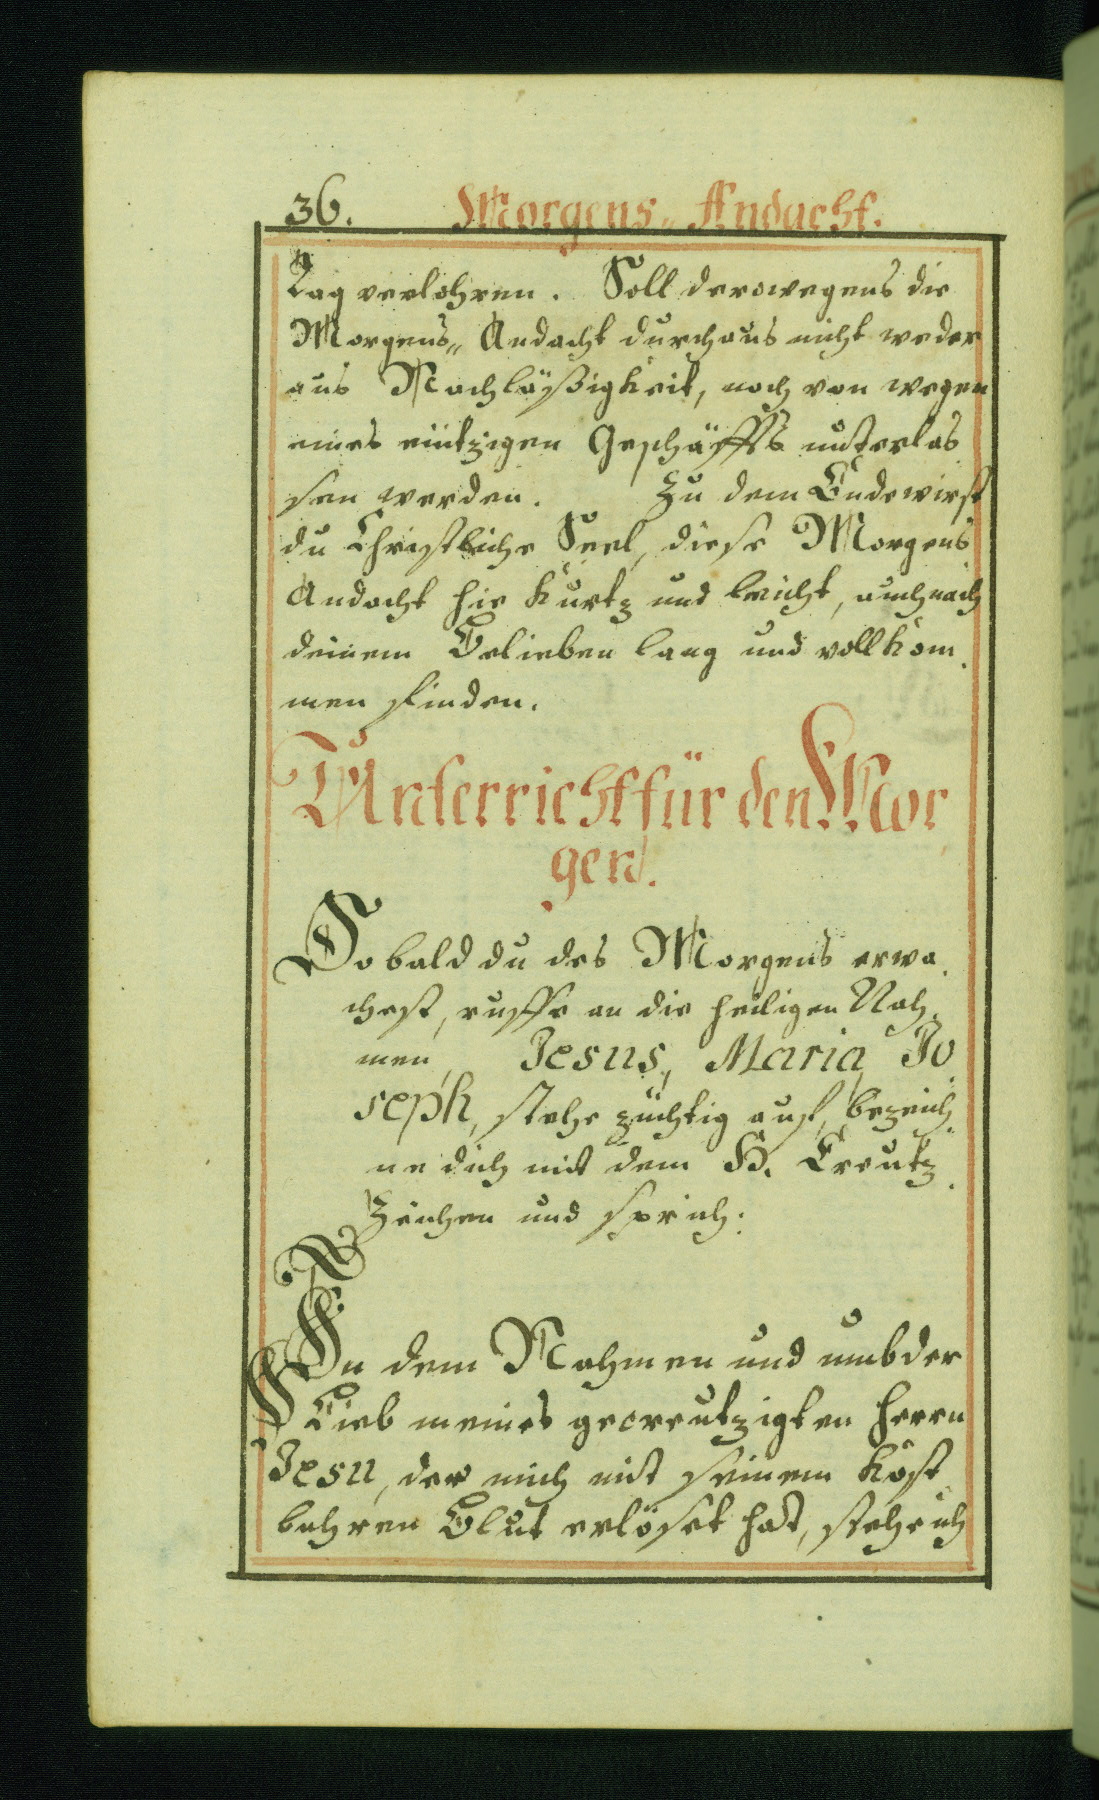 36. Morgens„ Andacht.
Tag verlohren. Soll derowegens die
Morgens„ Andacht durchaus nicht weder
aus Nachläßigkeit, noch von wegen
eines eintzigen Geschäffts unterlas
sen werden. Zu dem Ende wirst
du Christliche Seel, diese Morgens
Andacht hie kurtz und leicht, auch nach
deinem Belieben lang und vollkom
men finden.
Unterricht für den Mor
gen.
So bald du des Morgens erwa
chest, ruffe an die heiligen Nah
men, Jesus, Maria Jo
seph, stehe züchtig auf, bezeich
ne dich mit dem H. Creutz
Zeichen und sprich:
In dem Nahmen und umb der
Lieb meines gecreutzigten Herrn
Jesu, der mich mit seinem kost
bahren Blut erlöset hat, stehe ich